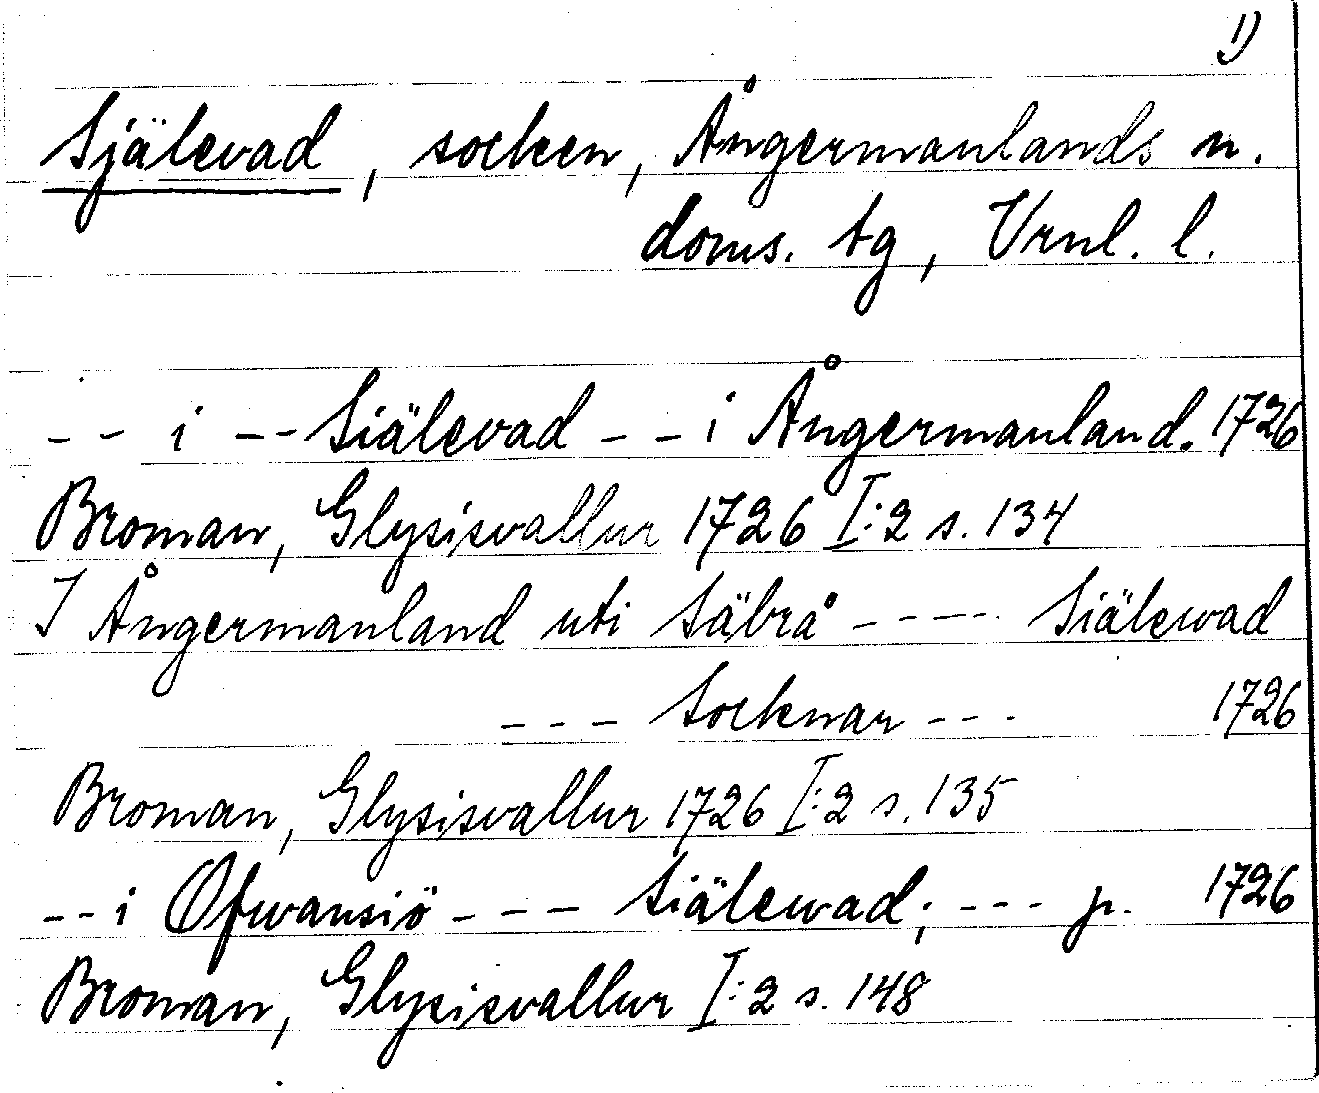 1)
Själevad, socken, Ångermanlands n.
doms. tg, Vrnl. l.
-- i --Siälevad -- i Ångermanland. 1726
Broman, Glysisvallur 1726 I:2 s. 134
I Ångermanland uti Säbrå ----- Siälewad
--- Socknar --- 1726
Broman, Glysisvallur 1726 I:2 s. 135
-- i Ofwansiö --- Siälewad; --- p. 1726
Broman, Glysisvallur I:2 s. 148